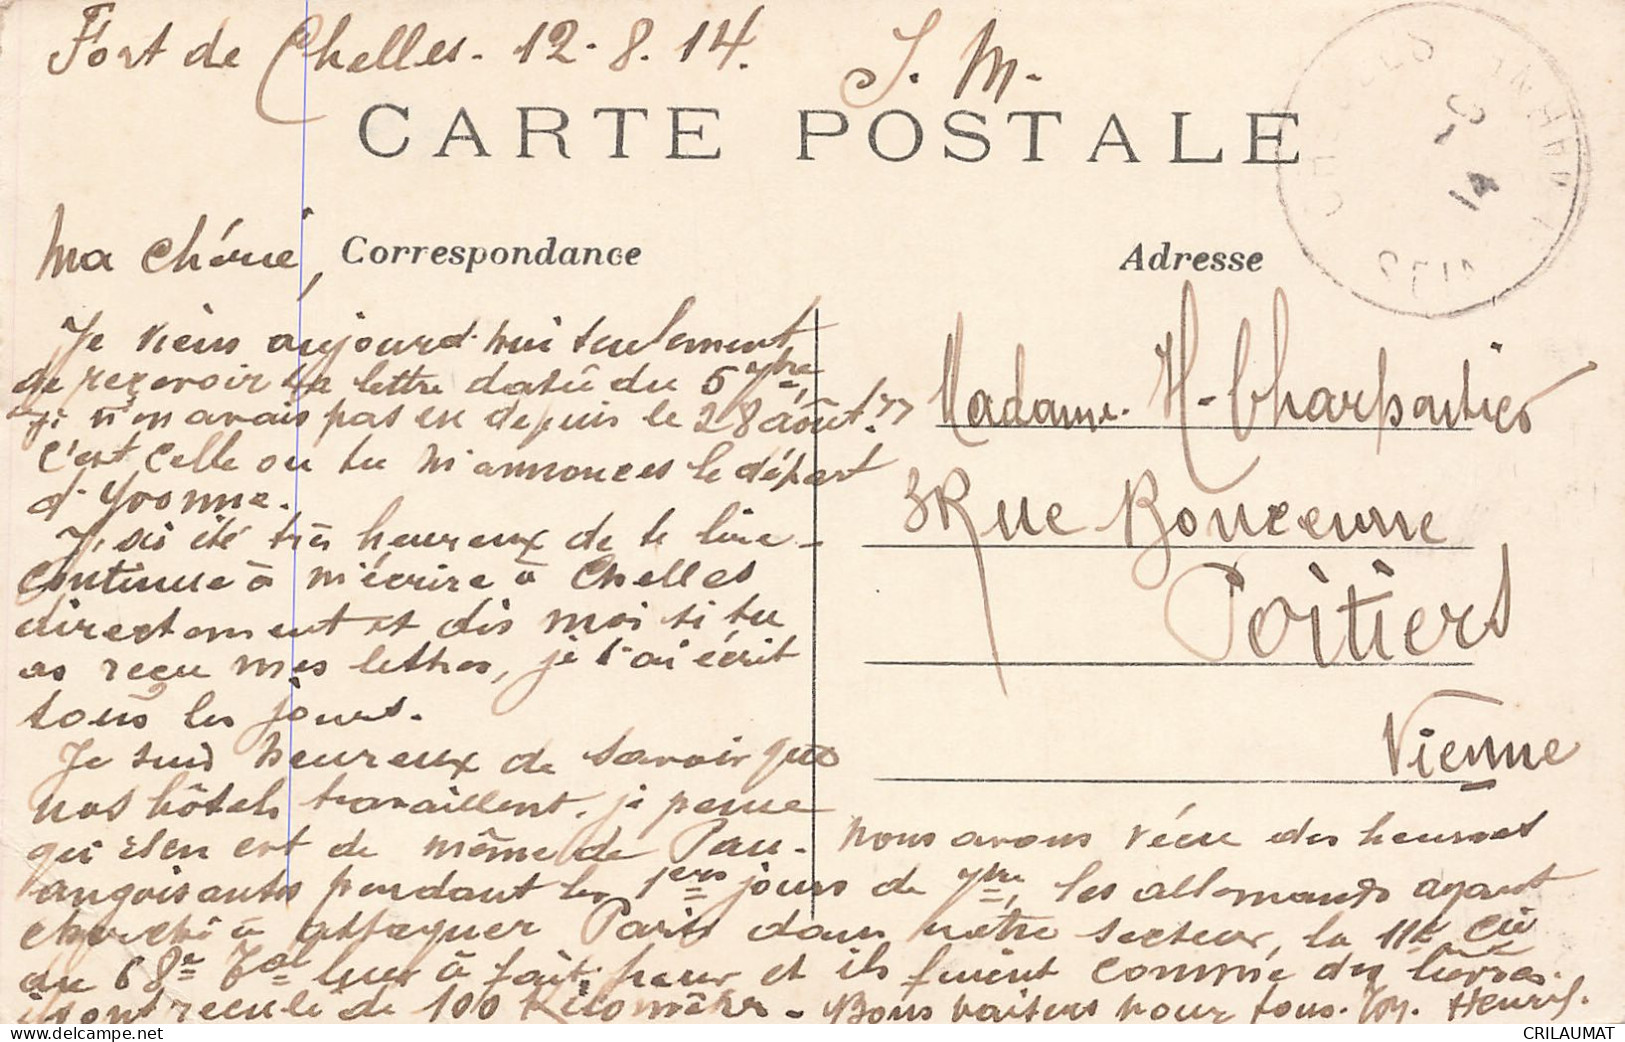 Fort de Chelles. 12.8.14.
S. M.
CARTE POSTALE
Correspondance
Adresse
Ma Chérie,
Je viens aujourd'hui seulement
de recevoir ta lettre datée du 5 7bre,
je n'en avais pas eu depuis le 28 août,
c'est celle où tu m'annonces le départ
d'Yvonne.
J'ai été très heureux de te lire -
continue à m'écrire à Chelles
directement et dis moi si tu
as reçu mes lettres, je t'ai écrit
tous les jours.
Je suis heureux de savoir que
nos hôtels travaillent. je pense
qu'il en est de même de Pau.
Madame. H. Charpentier
3 Rue Boncenne
Poitiers
Vienne
Nous avons vécu des heures
angoissantes pendant les 1ers jours de 7bre, les allemands ayant
cherché à attaquer Paris dans notre secteur, la 11e Cie
du 68e Tal leur à fait peur et ils fuient comme des lièvres.
ils ont reculé de 100 Kilomètres - Bons baisers pour tous. Ton Henri.
14
CRILAUMAT